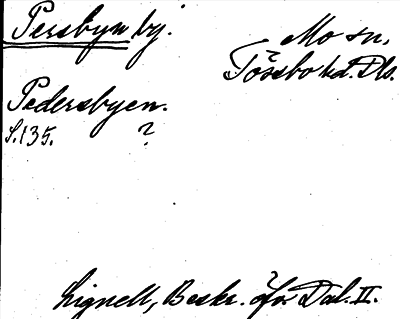 Persbyn by.
Mo sn,
Tössbo hd. Dls.
Pedersbyen.
S. 135. ?
Lignell, Beskr. öfver Dal. II.